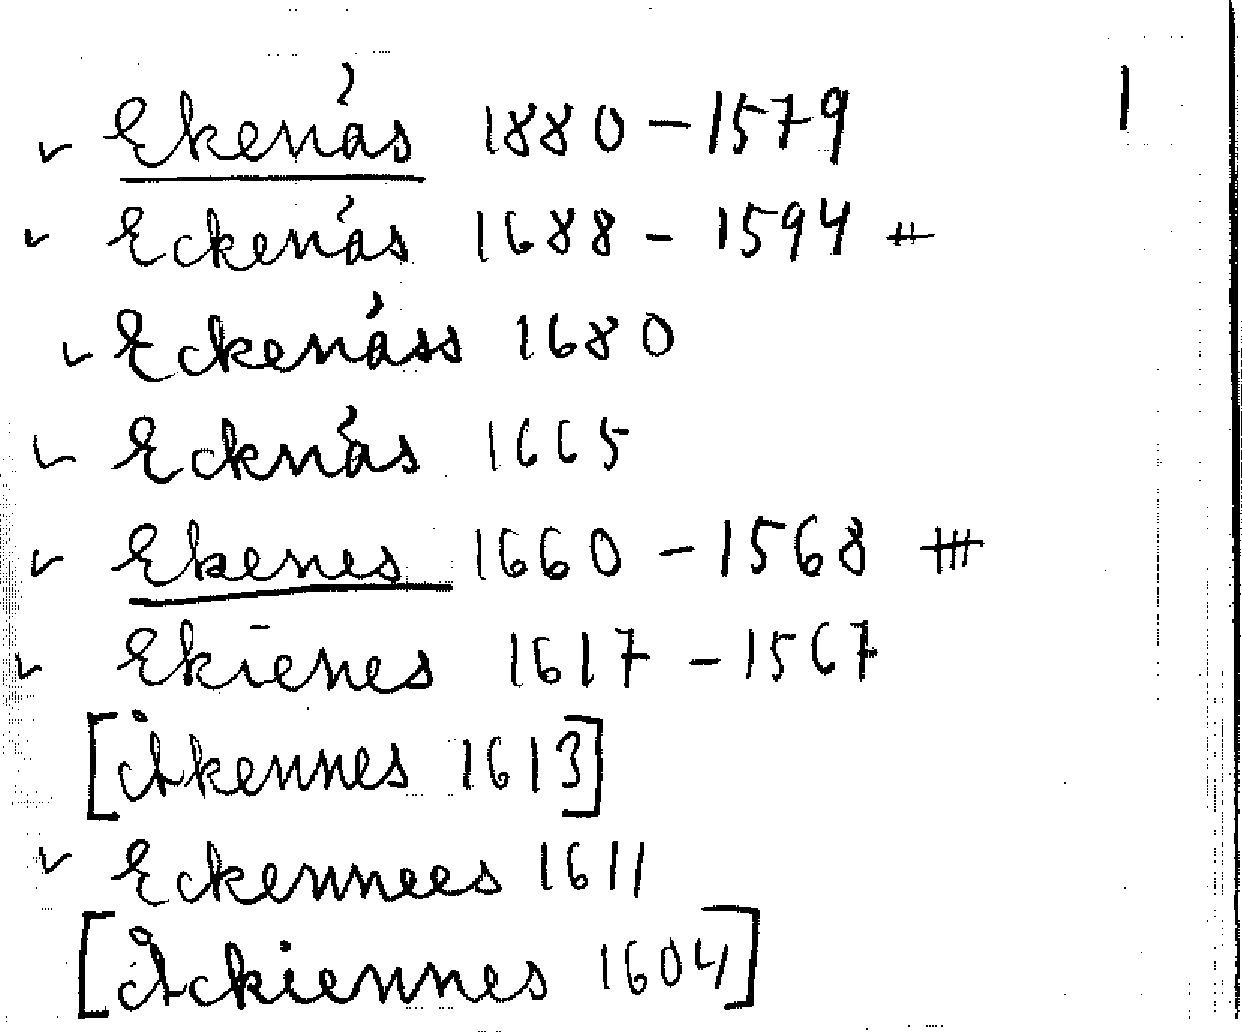 1
✓ Ekenäs 1880-1579
✓ Eckenäs 1688-1594 #
✓ Eckenäss 1680
✓ Ecknäs 1665
✓ Ekenes 1660-1568
✓ Ekienes 1617-1567
[Åkennes 1613]
✓ Eckennees 1611
[Åckiennes 1604]